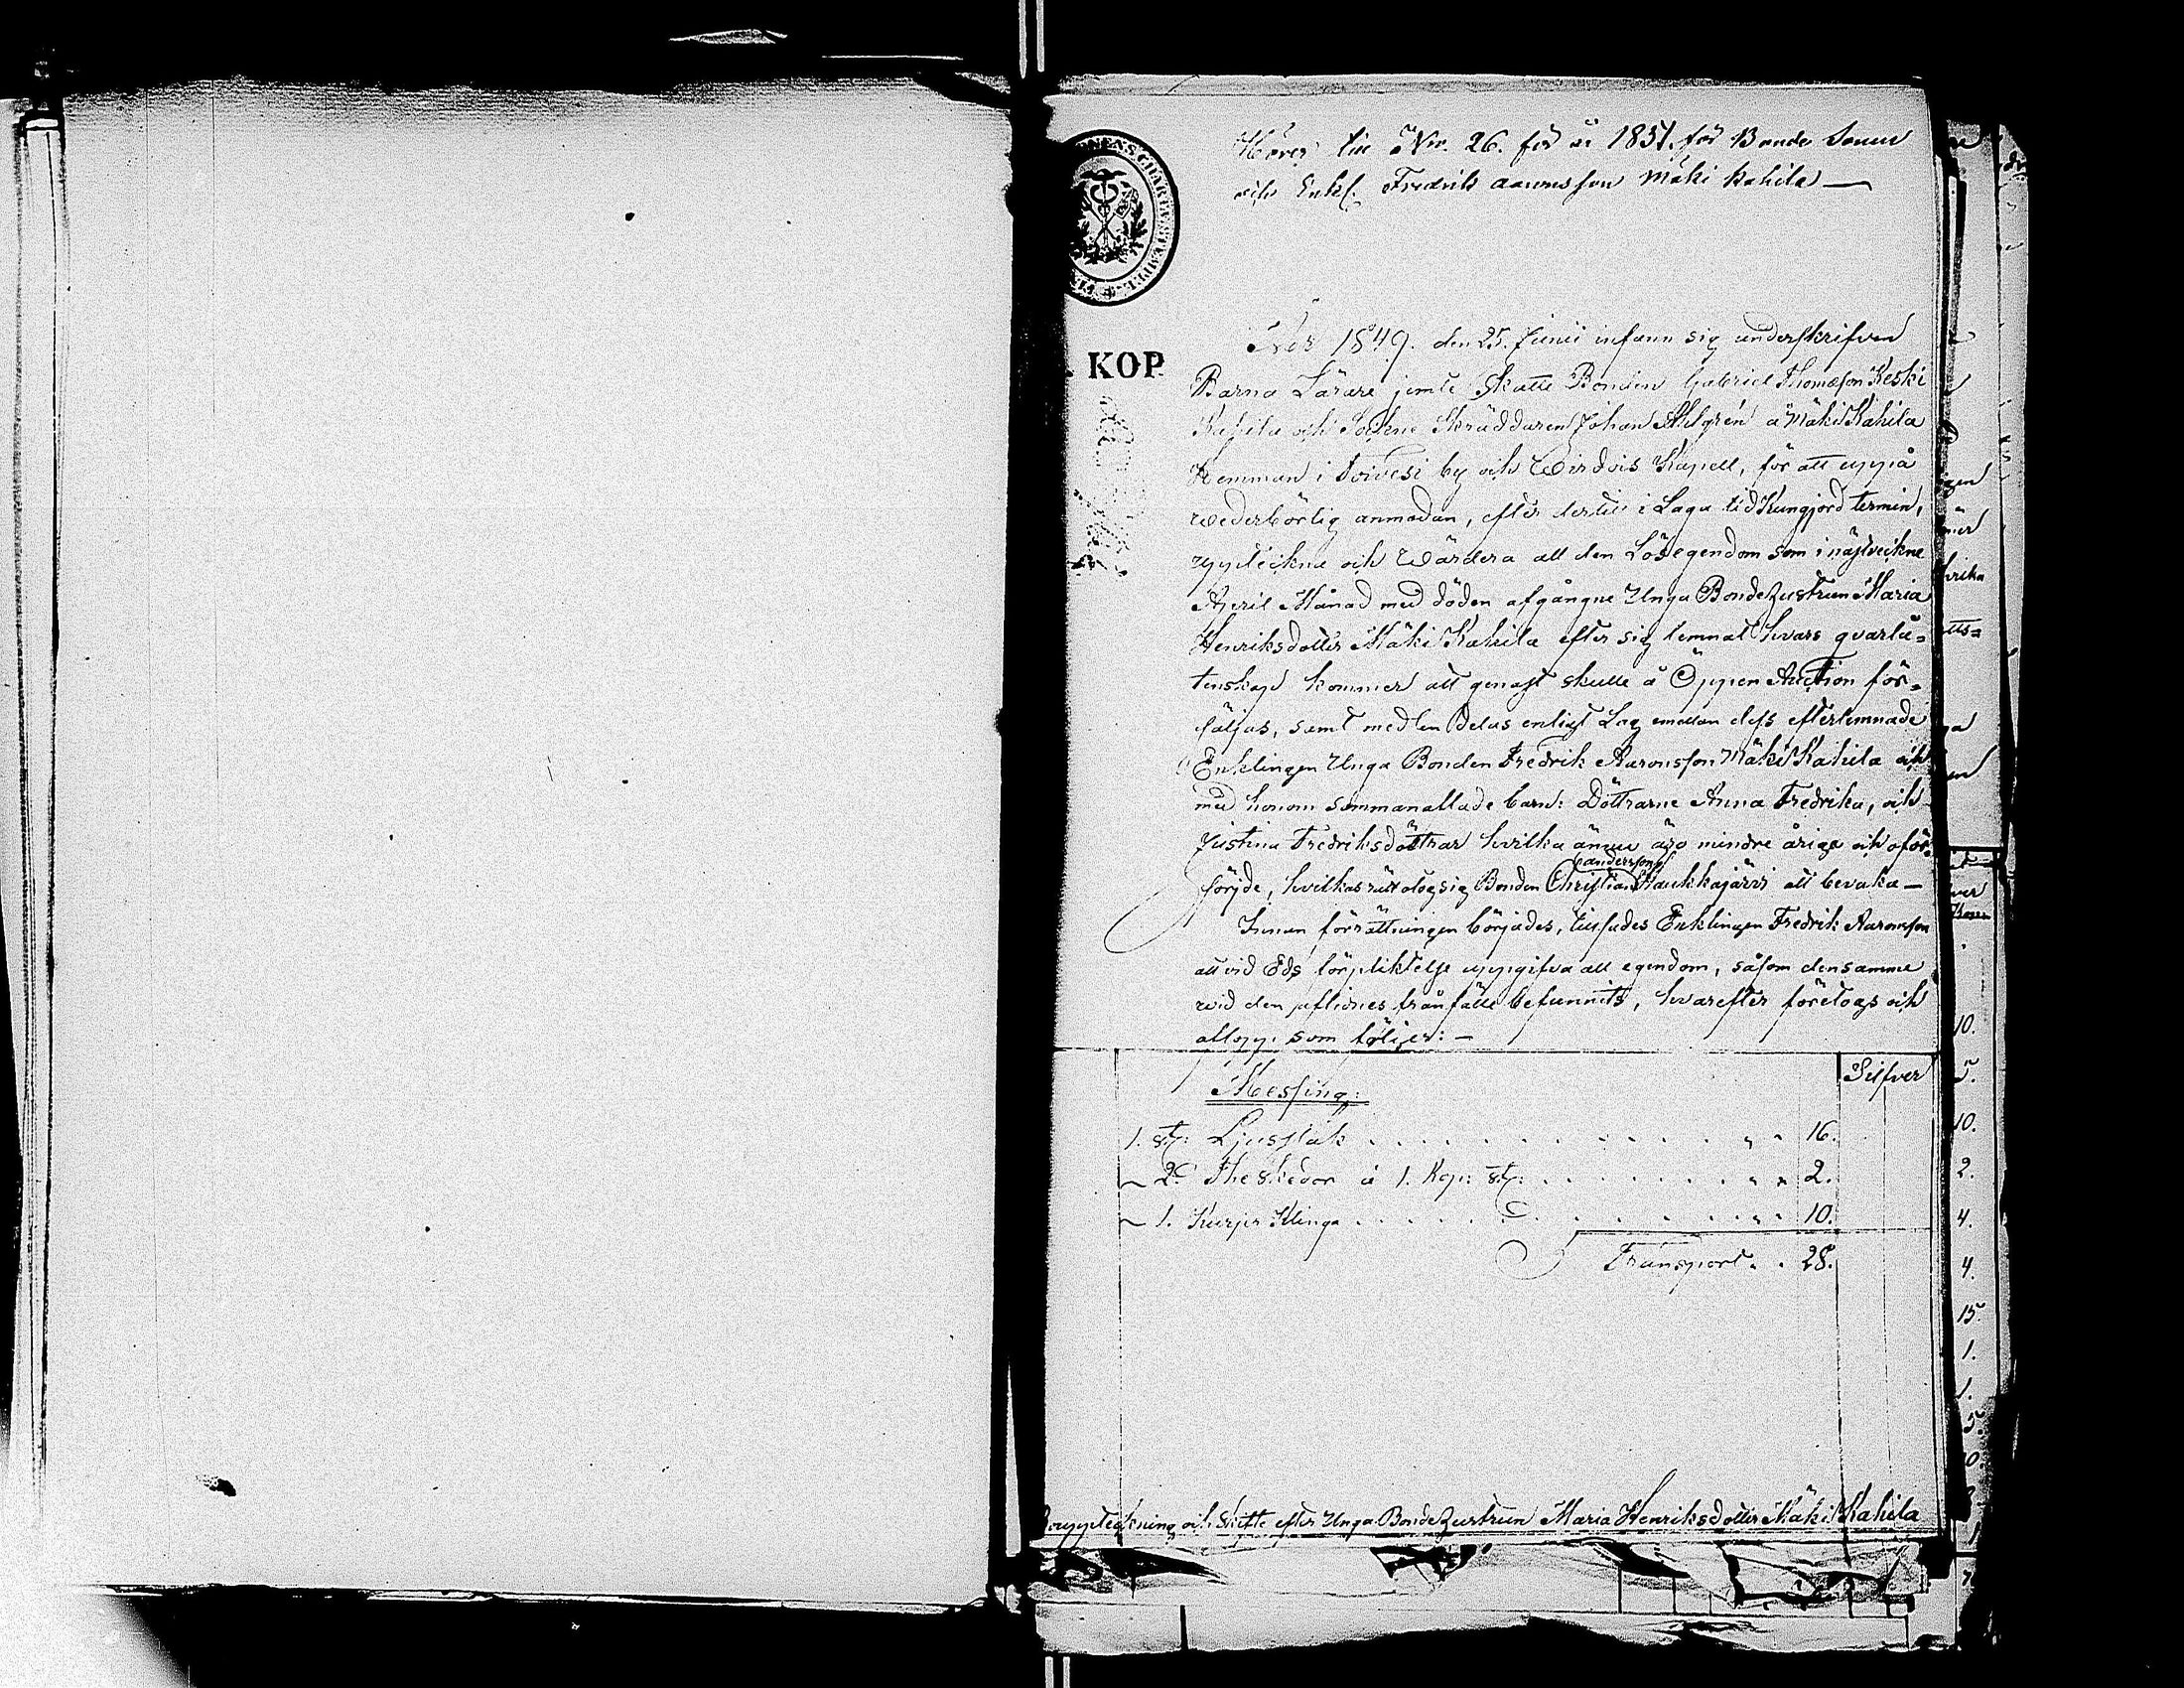 Hörer till No. 26. för år 1851. för Bonde Sonen
och Enkl. Fredrik Aaronsson Mäki Kahila —
KOP
År 1849. den 25. Junii infann sig underskrifven
Barna Lärare jemte Skatte Bonden Gabriel Thomæson Keski
Kahila och Sockne Skräddaren Johan Ahlgrén å Mäki Kahila
Hemman i Toivesi by och Wirdois Kapell, för att uppå
wederbörlig anmodan, efter dertill i Laga tid Kungjord termin,
uppteckna och Wärdera all den Lösegendom som i nästveikne
April Månad med döden afgångne Unga Bonde hustrun Maria
Henriksdotter Mäki Kahila efter sig lemnat hvars qvarlå-
tenskap kommer att genast skulle å Öppen Auction för-
säljas, samt medlen delas enligt Lag emellan dess efterlemnade
Enklingen Unga Bonden Fredrik Aaronsson Mäki Kahila och
med honom sammanaflade barn: Döttrarne Anna Fredrika, och
Justina Fredriksdöttrar hvilka ännu äro mindre åriga och oför-
andersson
sörjde, hvilkas rätt otog sig Bonden Christian Haukkajärvi att bevaka —
Innan förrättningen börjades, tillsades Enklingen Fredrik Aaronsson
att vid Eds förpliktelse uppgifva all egendom, såsom densamme
wid den aflidnes frånfälle befunnits, hvarefter företogs och
allopp. som följer: —
Silfver
Messing:
1. st: Ljusstak . . . . . . . . . . . . " " 16.
~ 2. d:o The Skedar á 1. Kop: st: . . . . . . . " " 2.
~ 1. Kurjer Klinga . . . . . . . . . . . " " 10.
Transport . . 28.
Bouppteckning och Skifte efter Unga Bonde hustrun Maria Henriksdotter Mäki Kahila